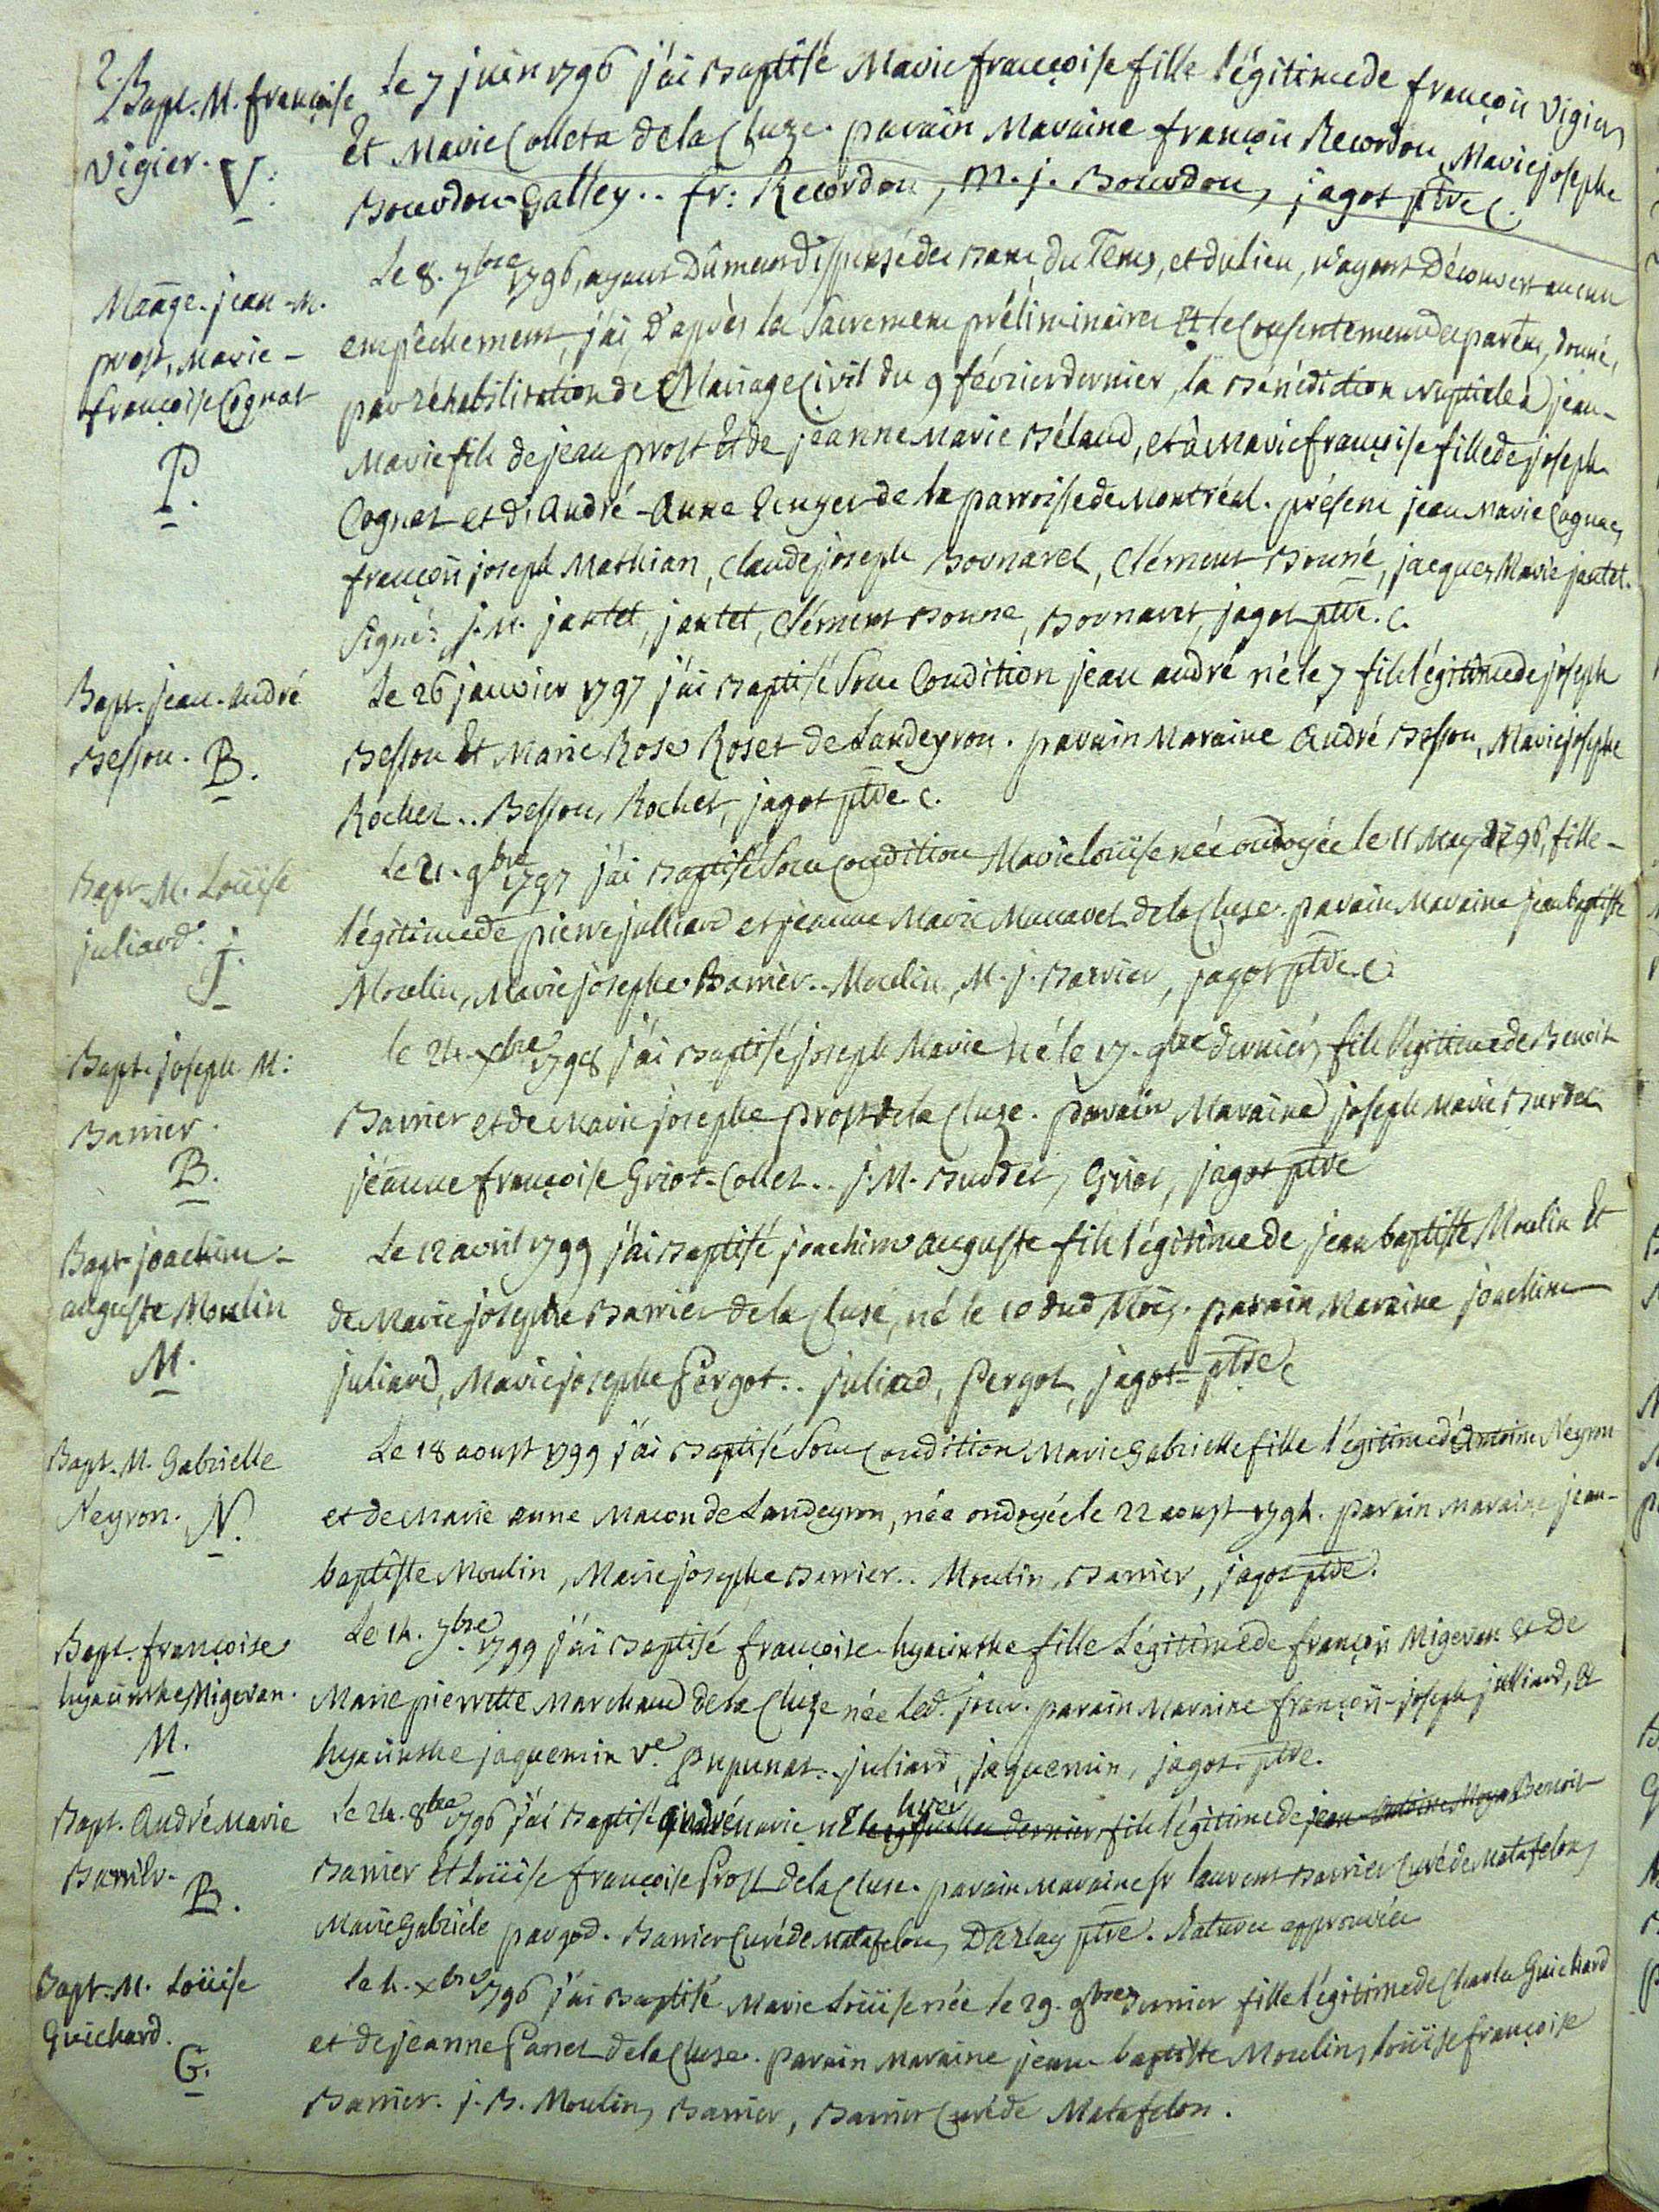 2.
Bapt. M. françoise
Vigier. V.
Le 7 juin 1796 j'ai Baptisé Marie françoise fille légitime de françois Vigier
Et Marie Colleta de la Cluze. parain Maraine françois Recordon, Marie josephe
Bourdon-Galley.. fr: Recordon, M. j. Bourdon, jagot ptre C.
Mariage. jean-M.
prost, Marie-
françoise Cognat
P.
Le 8. 7bre 1796, ayant Dûment dispensé des bans, du Tems, et du lieu, n'ayant Découvert aucun
empêchement, j'ai, d'après les Sacremens préliminaires Et le Consentement des parens, donné,
par réhabilitation de Mariage Civil du 9 février dernier, la Bénédiction Nuptiale à jean-
Marie fils de jean prost Et de jeanne Marie Béland, et à Marie françoise fille de joseph
Cognat et d'André-Anne de la parroisse de Montréal. présens jean Marie Cognat,
françois joseph Mathian, Claude joseph Bornarel, Clément Bonne, jacques Marie jantet.
Signé: j. M. jantet, jantet, Clément Bonne, Bornaret, jagot ptre. C.
Bapt. jean-André
Besson. B.
Le 26 janvier 1797 j'ai Baptisé Sous Condition jean andré né le 7 fils légitime de joseph
Besson Et Marie Rose Roset de Landeyron. parain Maraine André Besson, Marie josephe
Rochet.. Besson, Rochet, jagot ptre. C.
Bapt. M. Loüise
juliard. j.
Le 21. 9bre 1797 j'ai Baptisé Sous Condition Marie loüise née ondoyée le 11 May 1796, fille-
légitime de pierre julliard et jeanne Marie de la Cluse. parain Maraine jean baptiste
Moulin, Marie josephe Barrier.. Moulin, M. j. Barrier, jagot ptre. C.
Bapt. joseph M:
Barrier.
B.
le 24. Xbre 1798 j'ai Baptisé joseph Marie né le 17. 9bre dernier, fils légitime de Benoit
Barrier et de Marie josephe prost de la Cluze. parain Maraine joseph Marie Burdet
jeanne françoise Griot-Collet.. j. M. Burdet, Griot, jagot ptre
Bapt. joachim-
auguste Moulin
M.
Le 12 avril 1799 j'ai Baptisé joachim auguste fils légitime de jean baptiste Moulin Et
de Marie josephe Barrier de la Cluse, né le 10 dud. Mois. parain Maraine joachim
juliard, Marie josephe Pergot.. juliard, Pergot, jagot ptre C
Bapt. M. Gabrielle
Neyron. N.
Le 18 aoust 1799 j'ai Baptisé Sous Condition Marie Gabrielle fille légitime d'Antoine Neyron
et de Marie anne Macon de Landeyron, née ondoyée le 22 aoust 1794. parain Maraine jean-
baptiste Moulin, Marie josephe Barrier.. Moulin, Barrier, jagot ptre.
Bapt. françoise
hyacinthe Migevan.
M.
Le 14. 7bre 1799 j'ai Baptisé françoise-hyacinthe fille Légitime de françois Migevan et de
Marie pierrette Marchand de la Cluze née led. jour. parain Maraine françois-joseph julliard, et
hyacinthe jaquemin ve. Pupunat.. juliard, jaquemin, jagot ptre.
Bapt. André Marie
Barrier.
B.
Le 24. 8bre 1796 j'ai Baptisé André Marie né hier le 19 juillet dernier, fils légitime de jean-Antoine Benoit
Barrier Et Loüise françoise Prost de la Cluse. parain Maraine Sr laurent Barrier Curé de Matafelon,
Marie Gabriéle pargod. Barrier Curé de Matafelon, Darlay ptre. Ratures approuvées
Bapt. M. Loüise
Guichard.
G.
Le 4. Xbre 1796 j'ai Baptisé Marie Loüise née le 29. 9bre dernier fille légitime de Charles Guichard
et de jeanne Panet de la Cluse. parain Maraine jean baptiste Moulin, loüise françoise
Barrier. j. B. Moulin, Barrier, Barrier Curé de Matafelon.